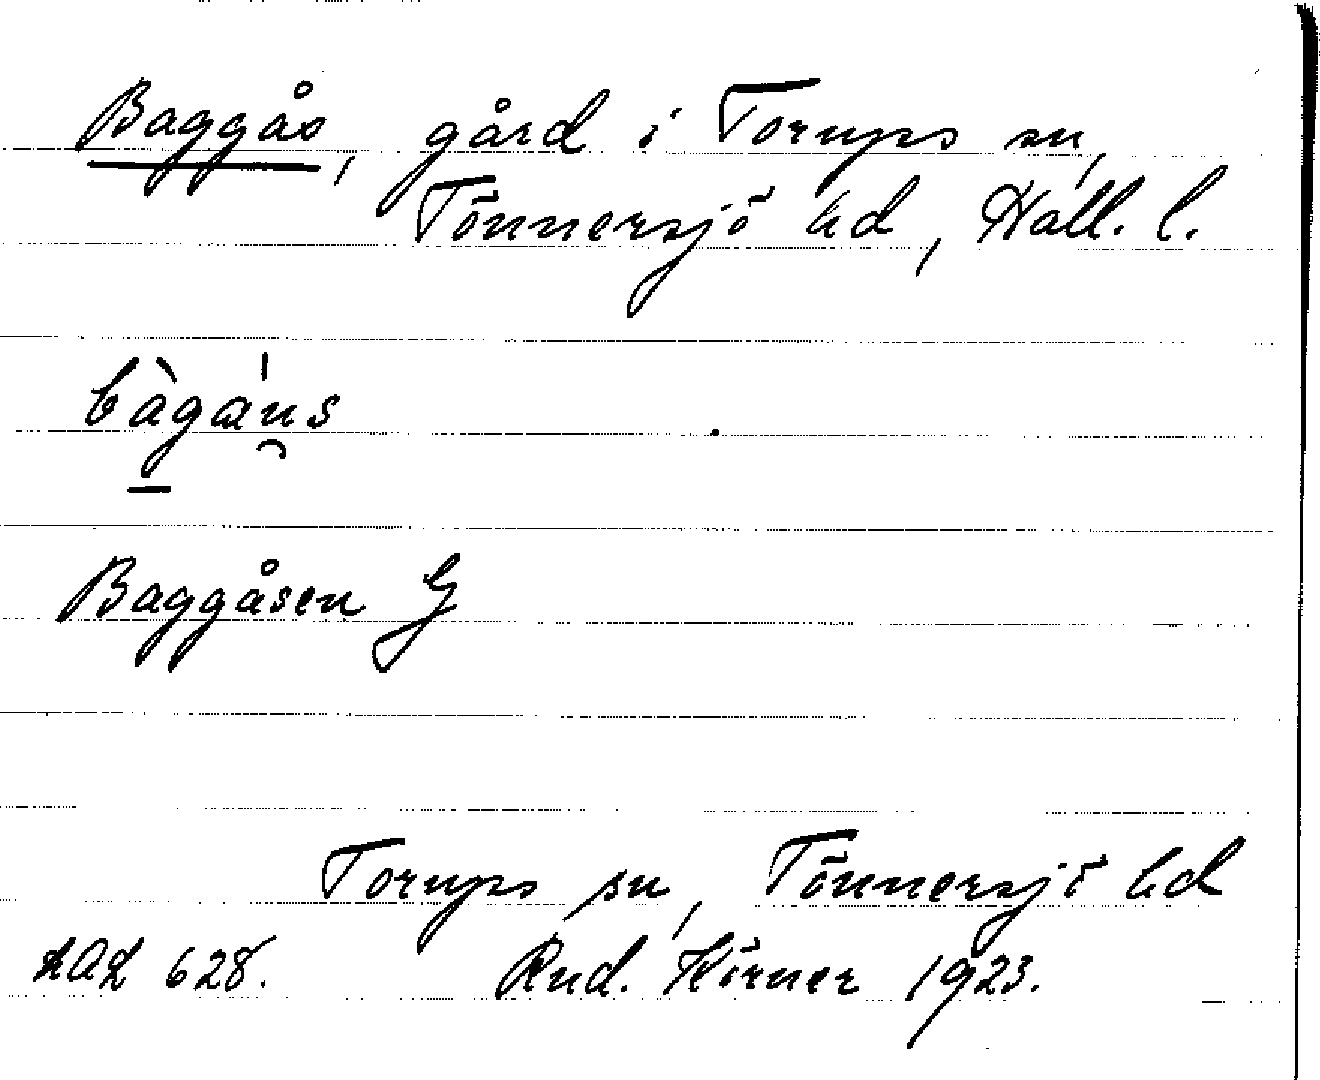 Baggås, gård i Torups sn,
Tönnersjö hd, Hall. l.
Baggåsen G
Torups sn, Tönnersjö hd
LAL 628. Rud. Körner 1923.